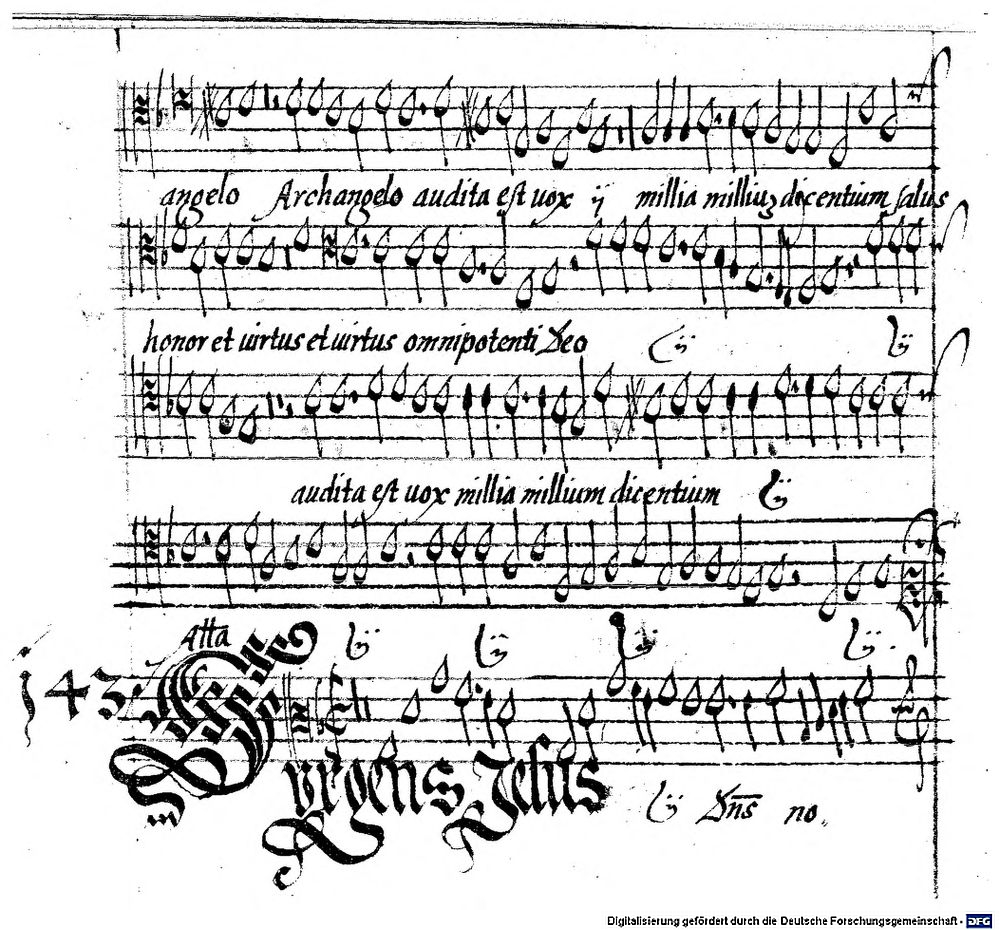 angelo Archangelo audita est uox ij millia milliuʒ dicentium salus
honor et uirtus et uirtus omnipotenti Deo ij ij
audita est uox millia millium dicentium ij
ij ij ij ij
143. Alta
Surgens Jesus ij Dns̄ no.
Digitalisierung gefördert durch die Deutsche Forschungsgemeinschaft - DFG